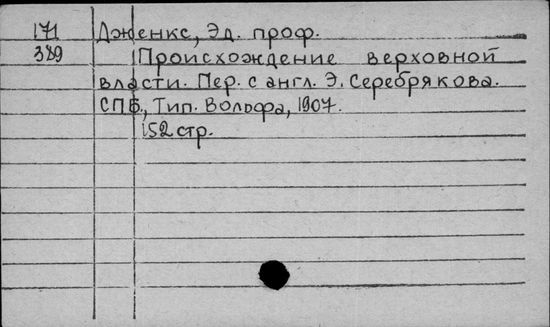 171 Дженкс, Эд. проф.
389 Происхождение верховной
власти. Пер. с англ. Э. Серебрякова.
СПБ, Тип. Вольфа, 1907.
152 стр.